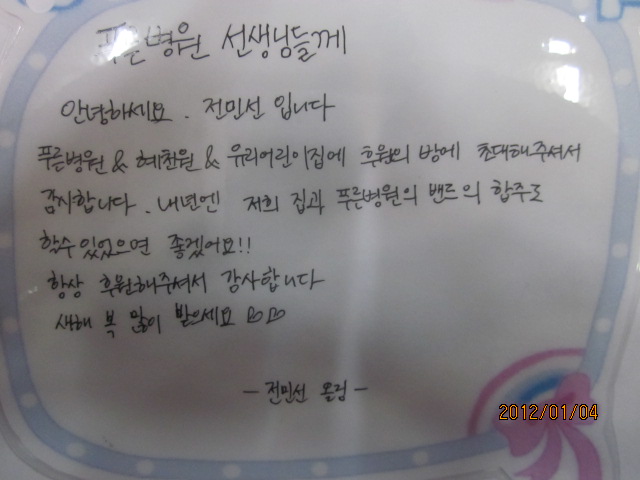 푸른병원 선생님들께
안녕하세요. 전민선 입니다
푸른병원 & 혜천원 & 유리어린이집에 후원의 밤에 초대해주셔서
감사합니다. 내년엔 저희 집과 푸른병원의 밴드의 합주도
할수있었으면 좋겠어요!!
항상 후원해주셔서 감사합니다
새해 복 많이 받으세요 ♡♡
- 전민선 올림 -
2012/01/04